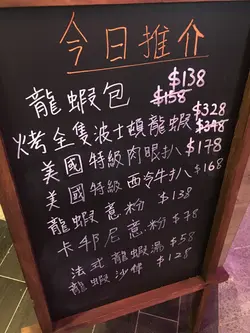 今日推介
龍蝦包 $138
$158
烤全隻波士頓龍蝦 $328
$348
美國特級肉眼扒 $178
美國特級西冷牛扒 $168
龍蝦意粉 $138
卡邦尼意粉 $78
法式龍蝦湯 $58
龍蝦沙律 $128